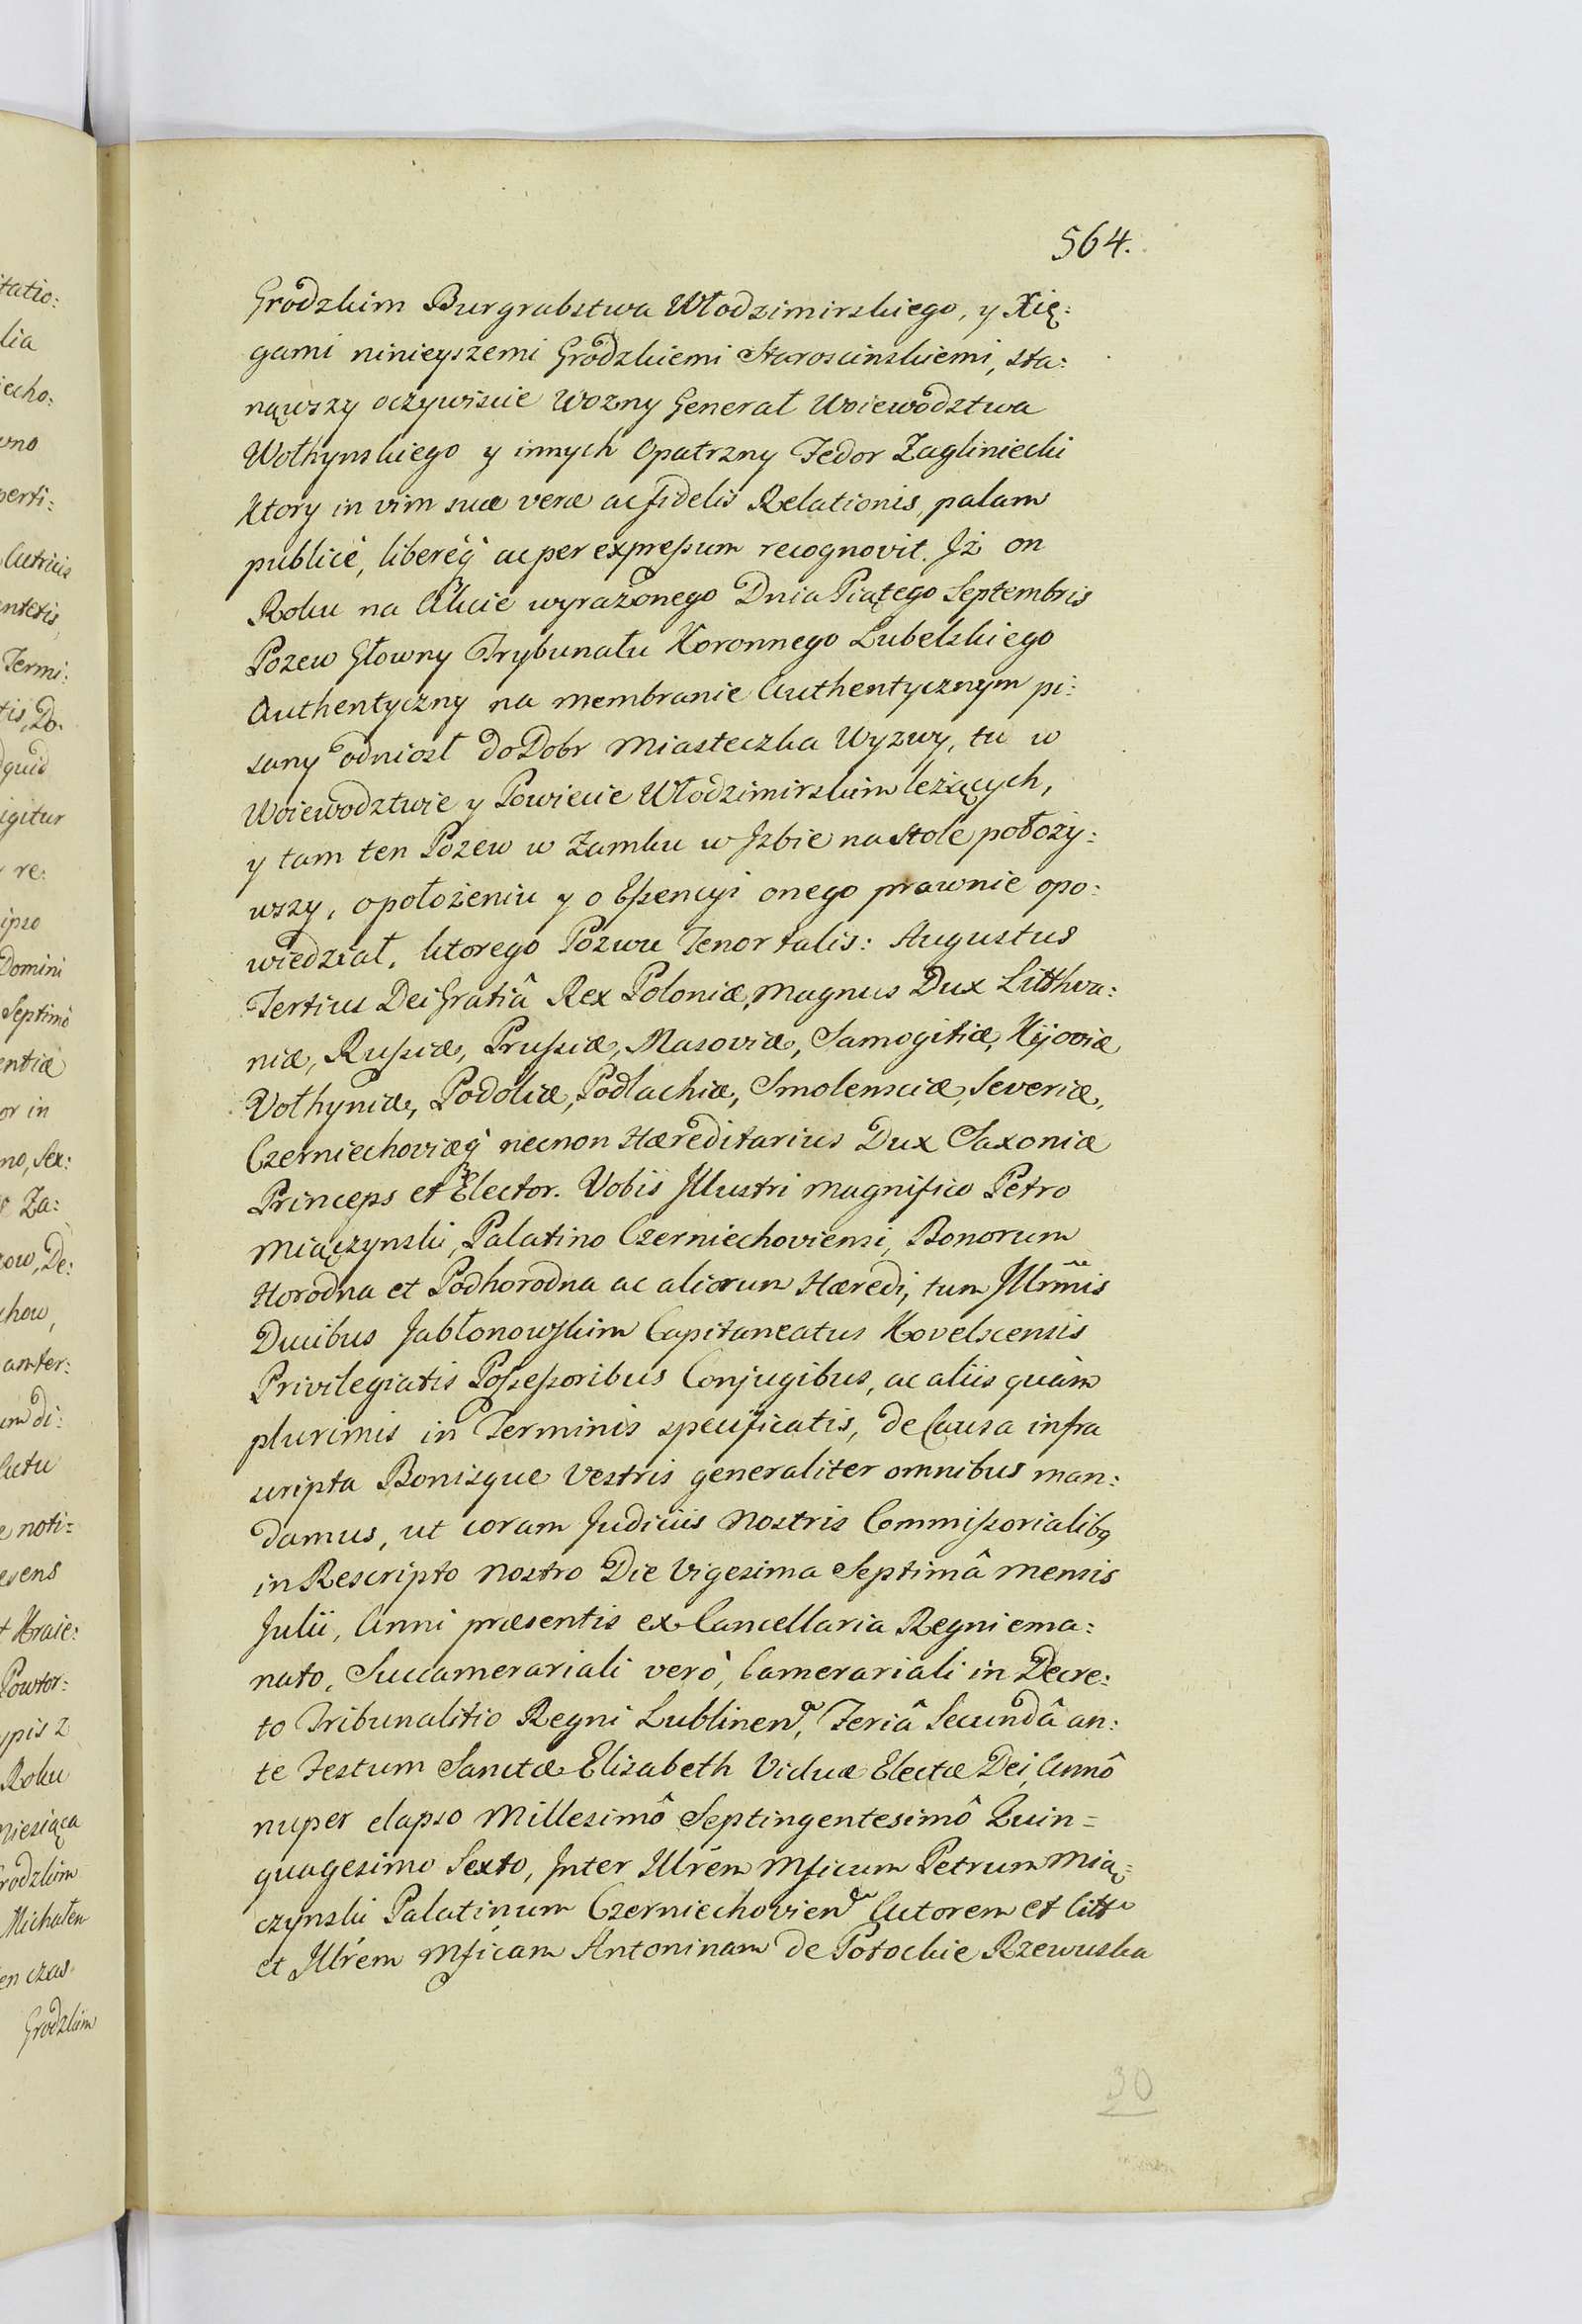 564.
Grodzkim Burgrabstwa Włodzimirskiego, y Xię:
gami ninieyszemi Grodzkiemi Staroscinskiemi, sta:
nąwszy oczywiscie Wozny Generał Woiewodztwa
Wołhynskiego y innych Opatrzny Fedor Zagliniecki
Ktory in vim suæ veræ ac fidelis Relationis, palam
publicè, libereq́ ac per expreſsum recognovit. Jż on
Roku na Akcie wyrażonego Dnia Piątego Septembris
Pozew Głowny Trybunału Koronnego Lubelskiego
Authentyczny na membranie Authentycznym pi:
sany odniosł do Dobr Miasteczka Wyzwy, tu w
Woiewodztwie y Powiecie Włodzimirskim leżących,
y tam ten Pozew w Zamku w Jzbie na Stole położy:
wszy, o położeniu y o Eſsencyi onego prawnie opo:
wiedział, ktorego Pozwu Tenor talis: Augustus
Tertius Dei Gratiâ Rex Poloniæ, Magnus Dux Litthva:
niæ, Ruſsiæ, Pruſsiæ, Masoviæ, Samogitiæ, Kijoviæ
Vołhyniæ, Podoliæ, Podlachiæ, Smolensciæ, Severiæ,
Czerniechoviæq́ necnon Hæreditarius Dux Saxoniæ
Princeps et Elector. Vobis Jllustri Magnifico Petro
Miączynski, Palatino Czerniechoviensi, Bonorum
Horodna et Podhorodna ac aliorum Hæredi, tum Jllrm̃is
Ducibus Jabłonowſkim Capitaneatus Kovelscensis
Privilegiatis Poſseſsoribus Conjugibus, ac aliis quàm
plurimis in Terminis specificatis, de Causa infra
scripta Bonisque Vestris generaliter omnibus man:
damus, ut coram Judiciis Nostris Commiſsorialibꝯ
in Rescripto Nostro Die Vigesima Septimâ Mensis
Julii, Anni præsentis ex Cancellaria Regni ema:
nato, Succamerariali verò, Camerariali in Decre:
to Tribunalitio Regni Lublinen, Feriâ Secundâ an:
te Festum Sanctæ Elisabeth Viduæ Electæ Dei, Annô
nuper elapso Millesimô Septingentesimô Quin=
quagesimo Sexto, Jnter Jllrem Mficum Petrum Mią:
czynski Palatinum Czerniechovien Actorem et Citt
et Jllrem Mficam Antoninam de Potockie Rzewuska
30
itatio:
lia
iecho:
wno
perti:
Termi:
tis, Do.
dquid
igitur
re:
ipso
Domini
Septimô
entiæ
or in
no, Sex:
Za:
zow, De:
chow,
anter:
um di:
Actu
e noti=
esens
t Kraie:
Powtor:
ypis z
Roku
miesiąca
rodzkim
Michałem
en czas
Grodzkim